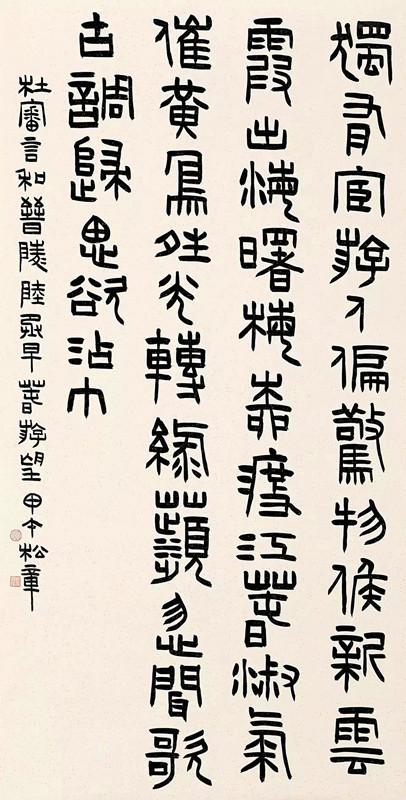 獨有宦游人偏驚物候新雲
霞出海曙梅柳渡江春淑氣
催黃鳥晴光轉綠蘋忽聞歌
古調歸思欲沾巾
杜審言和晉陵陸丞早春游望 甲午松章